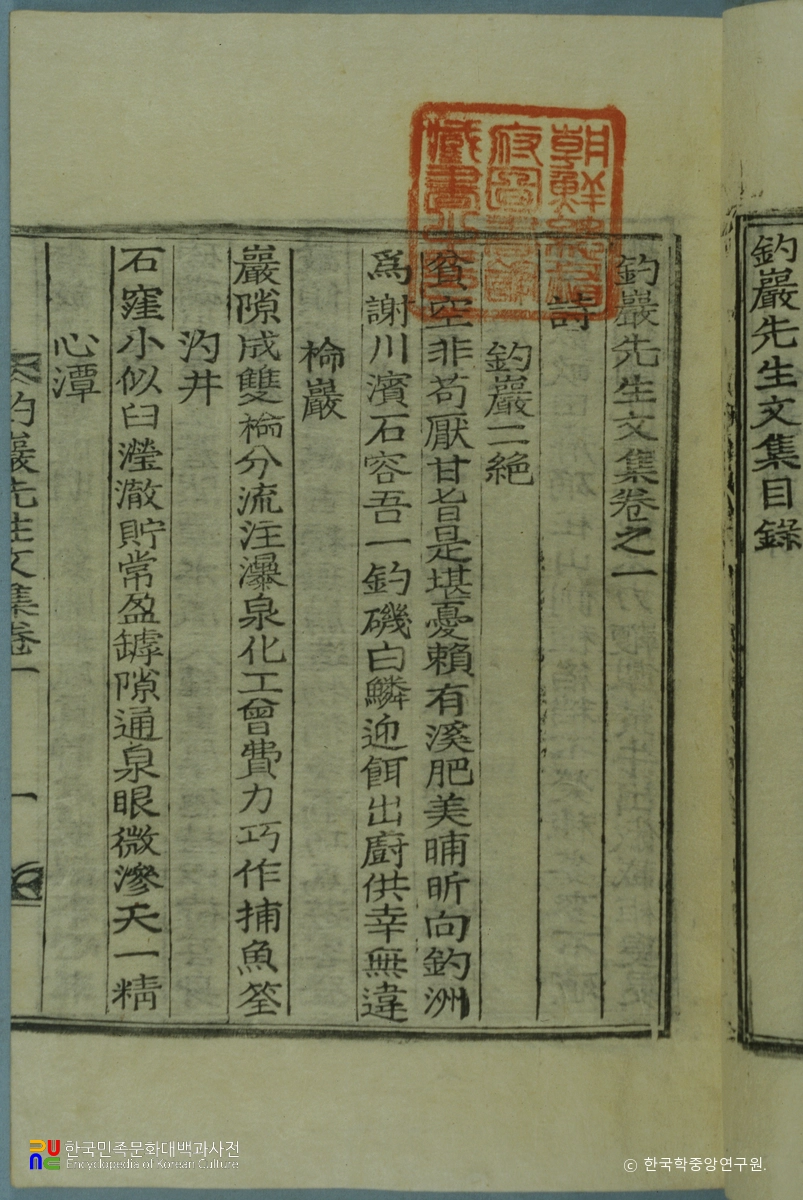 釣巖先生文集目錄
釣巖先生文集卷之一
詩
釣巖二絶
貧空非苟厭甘旨是堪憂賴有溪肥美晡昕向釣洲
爲謝川濱石容吾一釣磯白鱗迎餌出廚供幸無違
棆巖
巖隙成雙棆分流注瀑泉化工曾費力巧作捕魚筌
汋井
石窪小似臼瀅澈貯常盈罅隙通泉眼微滲天一精
心潭
釣巖先生文集卷一
一
朝鮮總督
府圖書館
藏書之
한국민족문화대백과사전
Encyclopedia of Korean Culture
ⓒ 한국학중앙연구원.